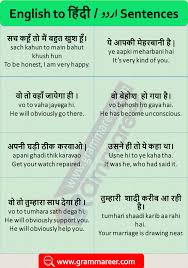 English to हिंदी / اردو Sentences
सच कहूँ तो मैं बहुत खुश हूँ।
sach kahun to main bahut
khush hun
To be honest, I am very happy.
ये आपकी मेहरबानी है।
ye aapki meharbani hai
It's very kind of you.
वो तो वहाँ जायेगा ही।
vo to vaha jayega hi.
He will obviously go there.
वो बेहोश हो गया है।
vo behosh ho gaya hai.
He has become unconscious.
अपनी घड़ी ठीक करवाओ।
apani ghadi thik karavao
Get your watch repaired.
उसने ही तो ये कहा था।
Usne hi to ye kaha tha.
It was he, who had said it.
वो तो तुम्हारा साथ देगा ही।
vo to tumhara sath dega hi.
He will obviously help you.
तुम्हारी शादी करीब आ रही
है।
tumhari shaadi karib aa rahi
hai.
Your marriage is drawing near.
www.grammareer.com
Grammareer